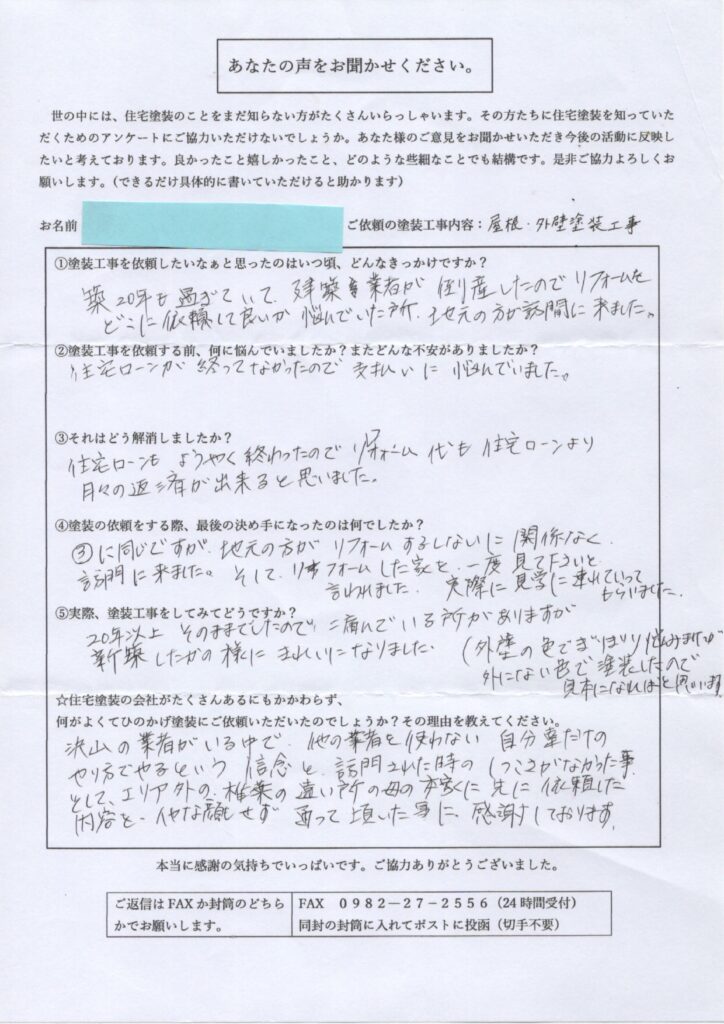 あなたの声をお聞かせください。
世の中には、住宅塗装のことをまだ知らない方がたくさんいらっしゃいます。その方たちに住宅塗装を知っていた
だくためのアンケートにご協力いただけないでしょうか。あなた様のご意見をお聞かせいただき今後の活動に反映し
たいと考えております。良かったこと嬉しかったこと、どのような些細なことでも結構です。是非ご協力よろしくお
願いします。（できるだけ具体的に書いていただけると助かります）
お名前 ご依頼の塗装工事内容：屋根・外壁塗装工事
①塗装工事を依頼したいなぁと思ったのはいつ頃、どんなきっかけですか？
築20年も過ぎていて、建築業者が倒産したのでリフォームを
どこに依頼して良いか悩んでいた所、地元の方が訪問に来ました。
②塗装工事を依頼する前、何に悩んでいましたか？またどんな不安がありましたか？
住宅ローンが終ってなかったので支払いに悩んでいました。
③それはどう解消しましたか？
住宅ローンもようやく終わったのでリフォーム代も住宅ローンより
月々の返済が出来ると思いました。
④塗装の依頼をする際、最後の決め手になったのは何でしたか？
③に同じですが、地元の方がリフォームするしないに関係なく
訪問に来ました。そして、リフォームした家を、一度見て下さいと
言われました。実際に見学に連れていって
もらいました。
⑤実際、塗装工事をしてみてどうですか？
20年以上そのままでしたので、痛んでいる所がありますが
新築したかの様にきれいになりました。
（外壁の色でぎりぎり悩みましたが
外にない色で塗装したので
見本になればと思います
☆住宅塗装の会社がたくさんあるにもかかわらず、
何がよくてひのかげ塗装にご依頼いただいたのでしょうか？その理由を教えてください。
沢山の業者がいる中で、他の業者を使わない自分達だけの
やり方でやるという信念と、訪問された時のしつこさがなかった事
そして、エリア外の、椎葉の遠い所の母の実家に先に依頼した
内容を、イヤな顔せず通って頂いた事に、感謝しております。
本当に感謝の気持ちでいっぱいです。ご協力ありがとうございました。
ご返信はFAXか封筒のどちら
かでお願いします。
FAX 0982－27－2556（24時間受付）
同封の封筒に入れてポストに投函（切手不要）